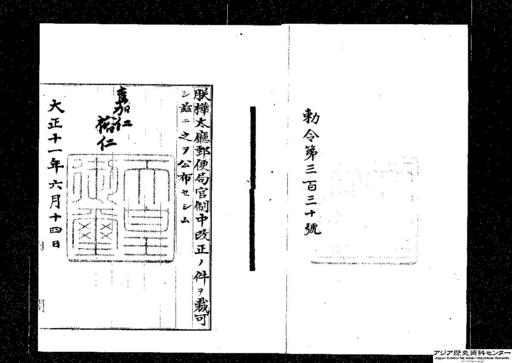 勅令第三百三十號
朕樺太廳郵便局官制中改正ノ件ヲ裁可
シ茲ニ之ヲ公布セシム
嘉仁
裕仁
天皇御璽
大正十一年六月十四日
アジア歴史資料センター
Japan Center for Asian Historical Records